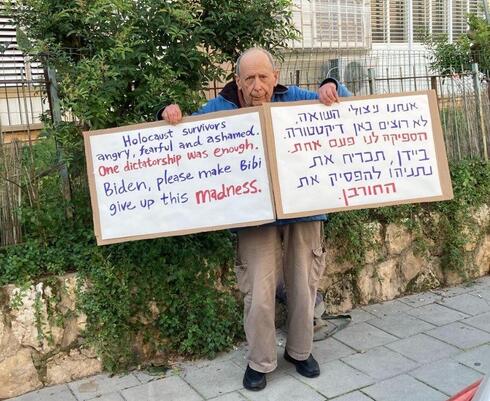 Holocaust survivors
angry, fearful and ashamed.
One dictatorship was enough.
Biden, please make Bibi
give up this madness.
אנחנו ניצולי השואה.
לא רוצים כאן דיקטטורה.
הספיקה לנו פעם אחת.
ביידן, תכריח את
נתניהו להפסיק את
החורבן.